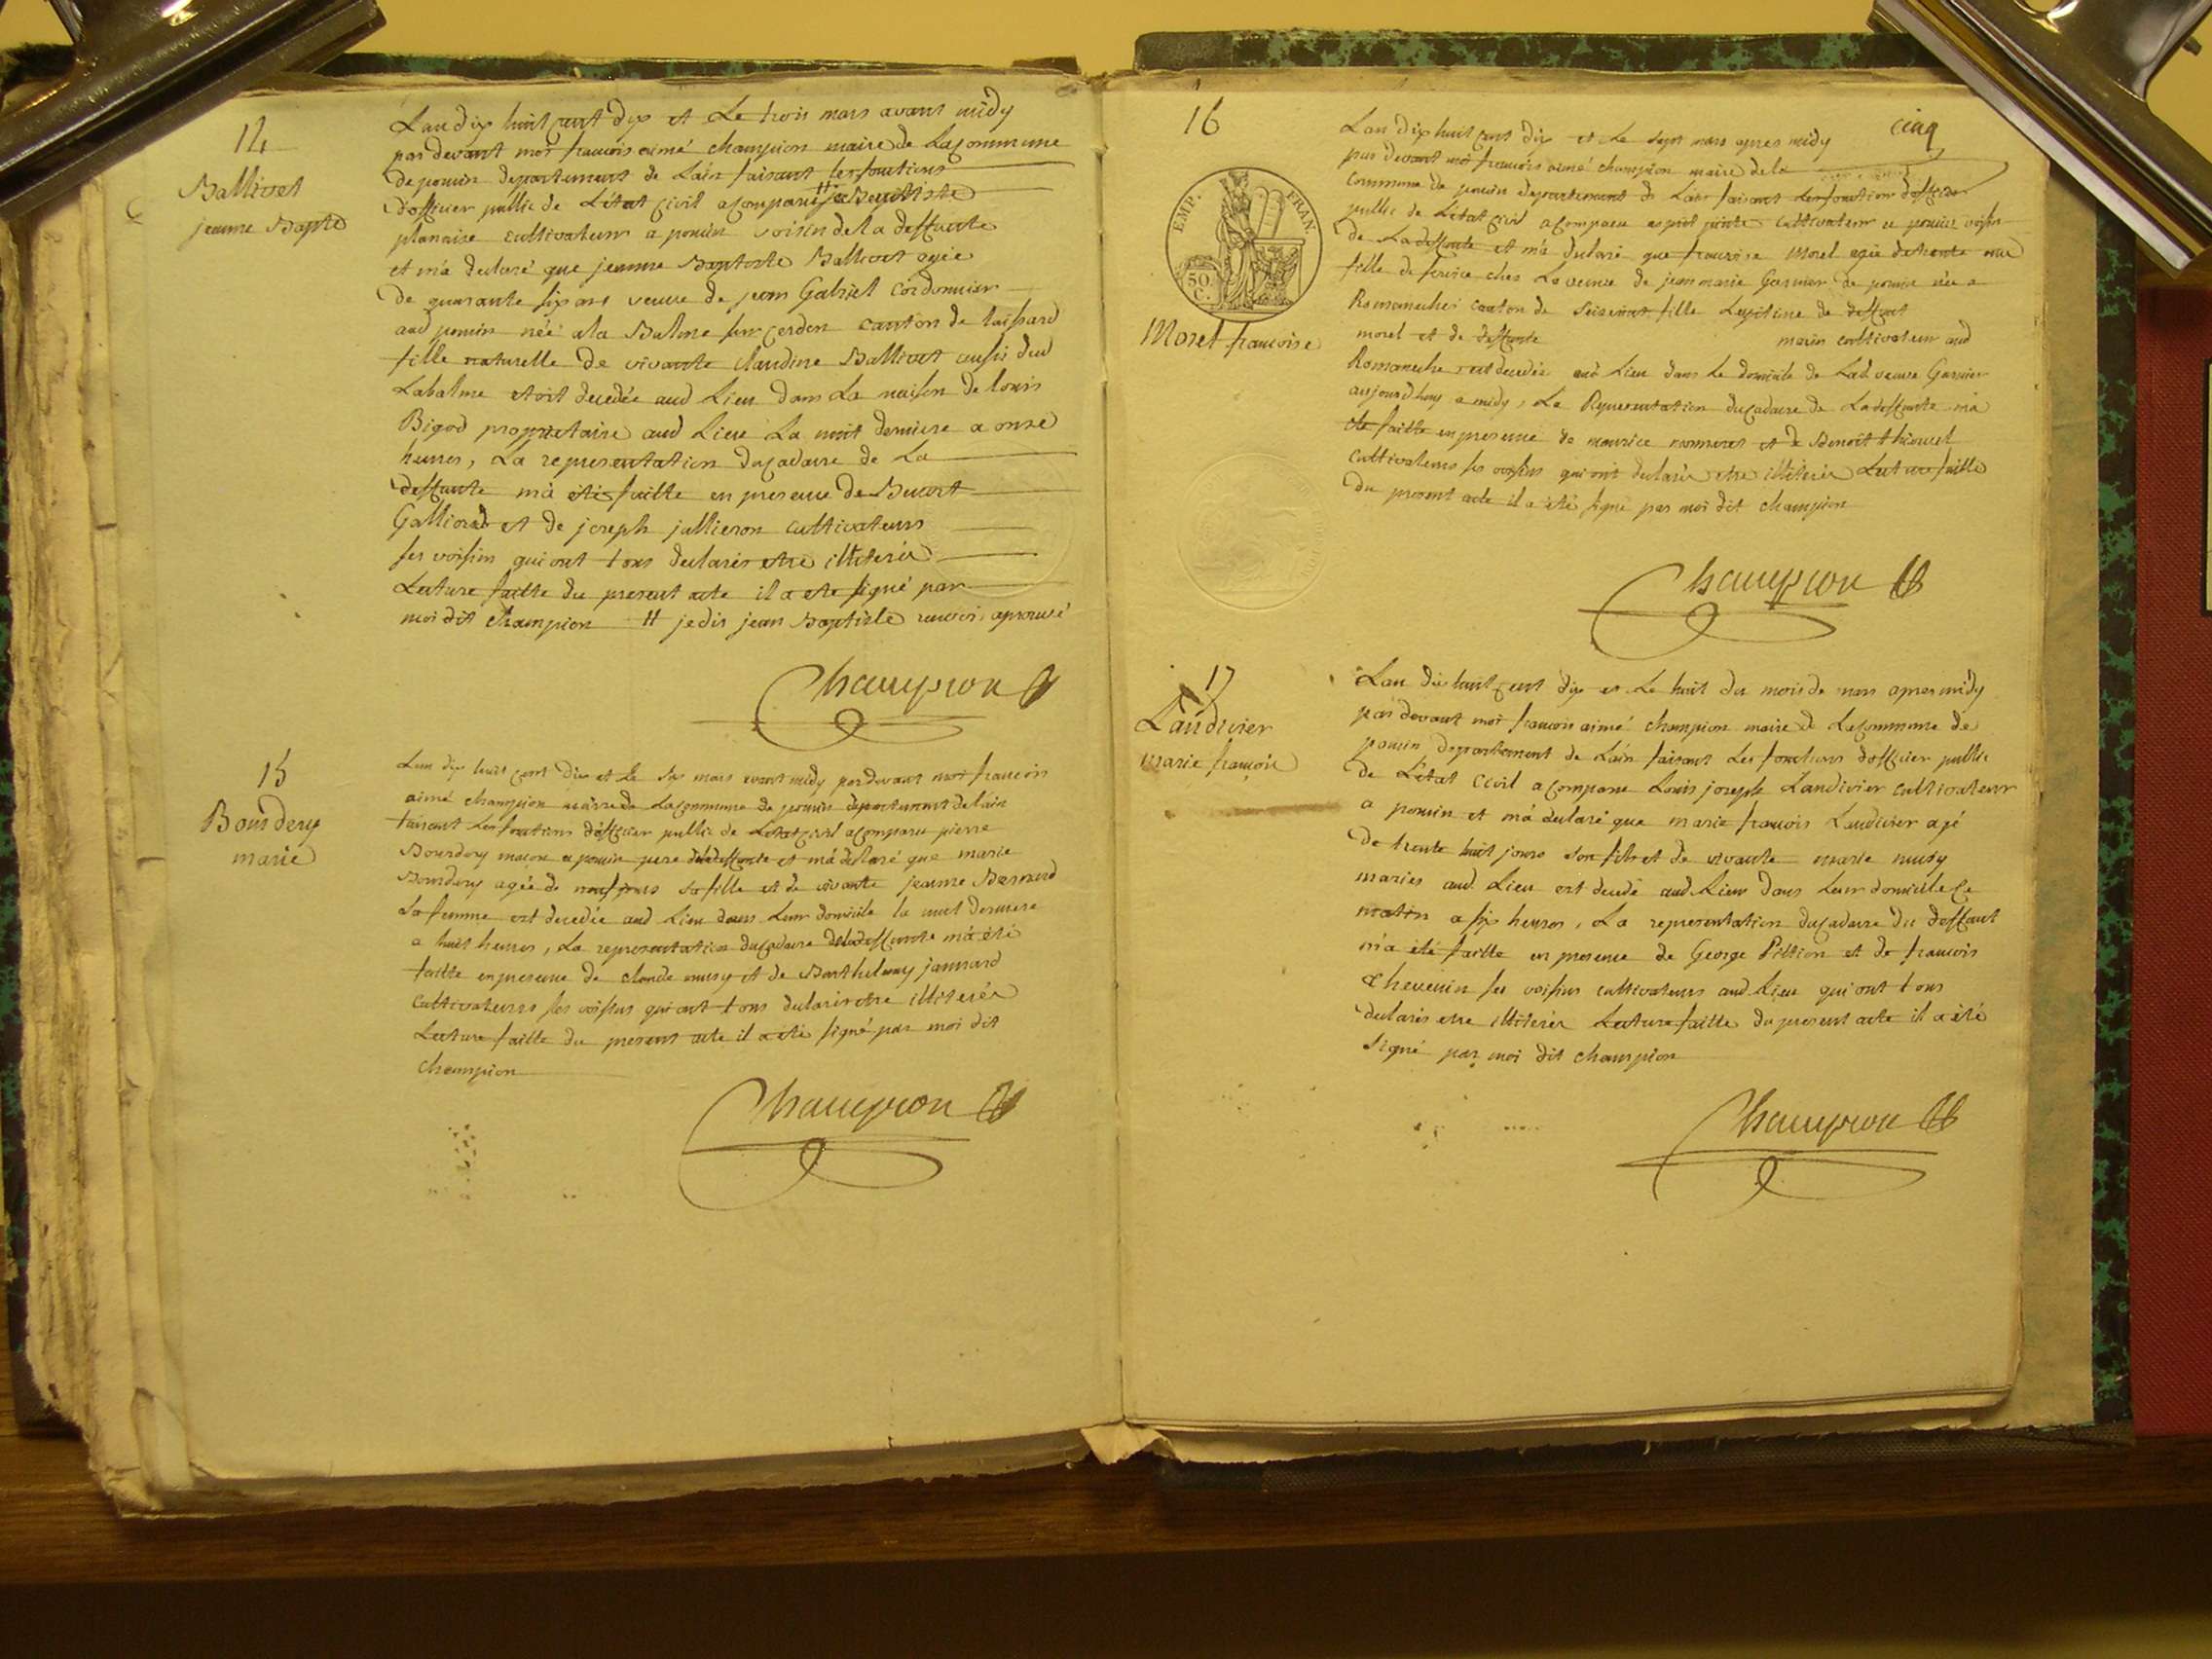 14
Ballivet
jeanne Bapte
Lan dix huit cent dix et Le trois mars avant midy
par devant moi francois aimé champion maire de La commune
de poncin departement de Lain faisant les fonctions
dofficier public de Létat Civil a comparu # Baptiste
planaise cultivateur a poncin voisin de la deffunte
et m'a declaré que jeanne Baptiste Ballivet agée
de quarante six ans veuve de jean Gabriel cordonnier
aud poncin née a la Balme sur cerdon canton de
fille naturelle de vivante claudine Ballivet aussi dud
Labalme etoit decedée aud Lieu dans La maison de louis
Bigod proprietaire aud Lieu La nuit derniere a onze
heures, La representation du cadavre de La
deffunte m'a été faitte en presence de Benoit
et de joseph jallieron cultivateurs
ses voisins qui ont tous declarés etre illiterés
Lecture faitte du present acte il a ete signé par
moi dit champion # je dis jean Baptiste renvoi aprouvé
Champion
15
Bourdery
marie
Lan dix huit cent dix et Le six mars avant midy par devant moi francois
aimé champion maire de La commune de poncin departement de lain
faisant Les fonctions dofficier public de Létat Civil a comparu pierre
Bourdery macon a poncin pere de la deffunte et m'a declaré que marie
Bourdery agée de neuf jours sa fille et de vivante jeanne Bernard
sa femme est decedée aud Lieu dans Leur domicile la nuit derniere
a huit heures, La representation du cadavre de la deffunte m'a été
faitte en presence de claude musy et de Barthelemy jannard
cultivateurs ses voisins qui ont tous declarés etre illiterés
Lecture faitte du present acte il a été signé par moi dit
champion
Champion
16
cinq
EMP. FRAN.
50 C.
Morel francoise
Lan dix huit cent dix et Le sept mars apres midy
par devant moi francois aimé champion maire de la
commune de poncin departement de Lain faisant Les fonction dofficier
public de Létat Civil a comparu esprit cultivateur a poncin voisin
de La deffunte et m'a declaré que francoise Morel agée de trente
fille de service ches La veuve de jean marie Garnier de poncin née a
Romaneche canton de fille Legitime de deffunt
morel et de deffunte mariés cultivateur aud
Romaneche est decedée aud Lieu dans Le domicile de Lad veuve Garnier
aujourdhuy a midy, La Representation du cadavre de La deffunte m'a
ete faitte en presence de maurice et de Benoit
cultivateurs ses voisins qui ont declarés etre illiterés Lecture faitte
du present acte il a été signé par moi dit champion
Champion
17
Laudivier
marie francois
Lan dix huit cent dix et Le huit du mois de mars apres midy
par devant moi francois aimé champion maire de La commune de
poncin departement de Lain faisant Les fonctions dofficier public
de Létat Civil a comparu Louis joseph Laudivier cultivateur
a poncin et m'a declaré que marie francois Laudivier agé
de trente huit jours son fils et de vivante marie musy
mariés aud. Lieu est decedé aud. Lieu dans Leur domicile ce
matin a six heures, La representation du cadavre du deffunt
m'a été faitte en presence de George Pittion et de francois
Thevenin ses voisins cultivateurs aud. Lieu qui ont tous
declarés etre illiterés Lecture faitte du present acte il a été
signé par moi dit champion
Champion